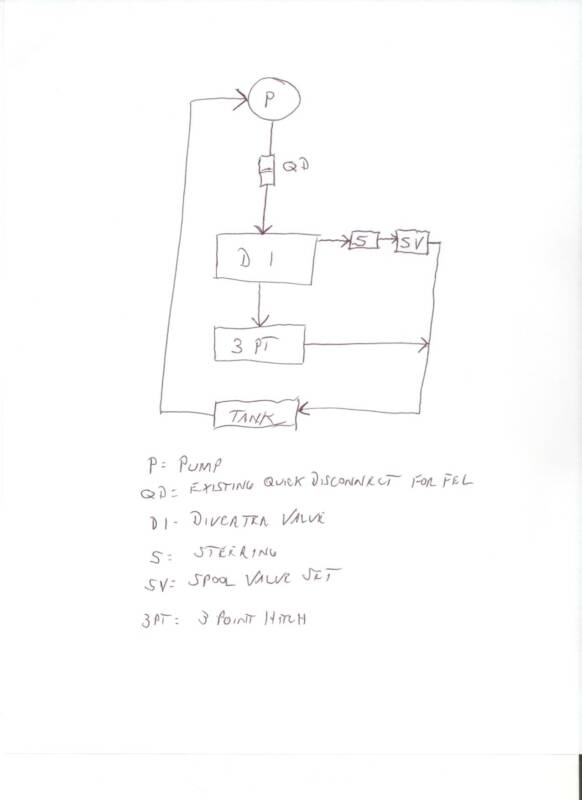 P
QD
D 1
S
SV
3 PT
TANK
P= PUMP
QD= EXISTING QUICK DISCONNECT FOR FEL
D1- DIVERTER VALVE
S= STEERING
SV= SPOOL VALVE SET
3PT= 3 POINT HITCH